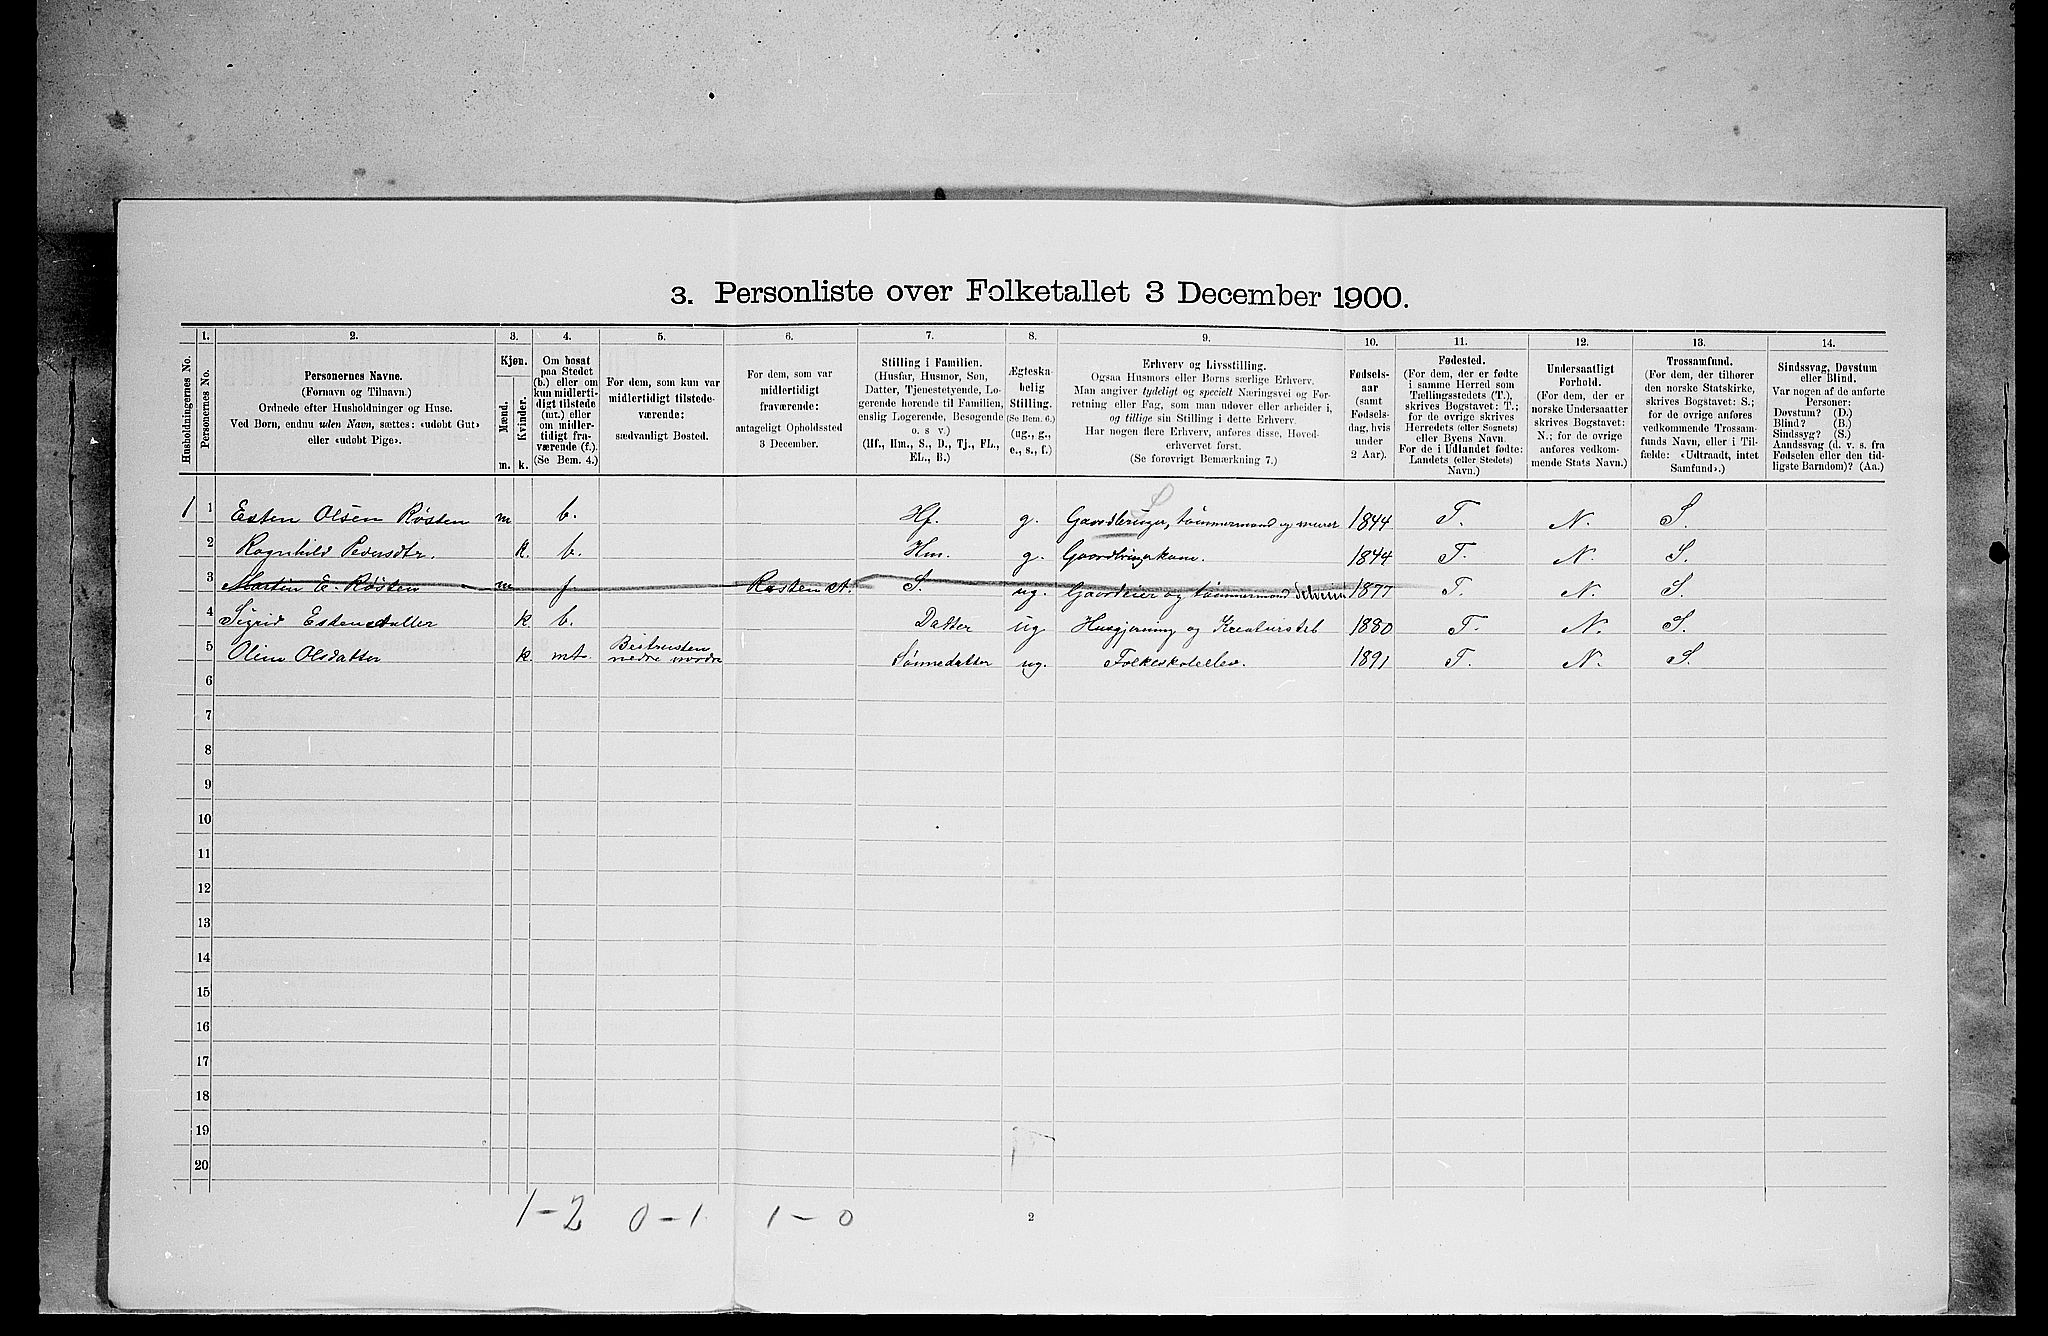 3. Personliste over Folketallet 3 December 1900.
Husholdningernes No.
1.
Personernes No.
2.
Personernes Navne.
(Fornavn og Tilnavn.)
Ordnede efter Husholdninger og Huse.
Ved Børn, endnu uden Navn, sættes: «udøbt Gut»
eller «udøbt Pige».
3.
Kjøn.
Mænd.
Kvinder.
m. k.
4.
Om bosat
paa Stedet
(b.) eller om
kun midlerti-
digt tilstede
(mt.) eller
om midler-
tidigt fra-
værende (f.).
(Se Bem. 4.)
5.
For dem, som kun var
midlertidigt tilstede-
værende:
sædvanligt Bosted.
6.
For dem, som var
midlertidigt
fraværende:
antageligt Opholdssted
3 December.
7.
Stilling i Familien.
(Husfar, Husmor, Søn,
Datter, Tjenestetyende, Lo-
gerende hørende til Familien,
enslig Logerende, Besøgende
o. s. v.)
(Hf., Hm., S., D., Tj., FL.,
EL., B.)
8.
Ægteska-
belig
Stilling.
(Se Bem. 6.)
(ug., g.,
e., s., f.)
9.
Erhverv og Livsstilling.
Ogsaa Husmors eller Børns særlige Erhverv.
Man angiver tydeligt og specielt Næringsvei og For-
retning eller Fag, som man udøver eller arbeider i,
og tillige sin Stilling i dette Erhverv.
Har nogen flere Erhverv, anføres disse, Hoved-
erhvervet først.
(Se forøvrigt Bemærkning 7.)
10.
Fødsels-
aar
(samt
Fødsels-
dag, hvis
under
2 Aar).
11.
Fødested.
(For dem, der er fødte
i samme Herred som
Tællingsstedets (T.),
skrives Bogstavet: T.;
for de øvrige skrives
Herredets (eller Sognets)
eller Byens Navn.
For de i Udlandet fødte:
Landets (eller Stedets)
Navn.)
12.
Undersaatligt
Forhold.
(For dem, der er
norske Undersaatter
skrives Bogstavet:
N.; for de øvrige
anføres vedkom-
mende Stats Navn.)
13.
Trossamfund.
(For dem, der tilhører
den norske Statskirke,
skrives Bogstavet: S.;
for de øvrige anføres
vedkommende Trossam-
funds Navn, eller i Til-
fælde: «Udtraadt, intet
Samfund».)
14.
Sindssvag, Døvstum
eller Blind.
Var nogen af de anførte
Personer:
Døvstum? (D.)
Blind? (B.)
Sindssyg? (S.)
Aandssvag (d. v. s. fra
Fødselen eller den tid-
ligste Barndom)? (Aa.)
S
1 1 Esten Olsen Røsten m b. Hf. g. Gaardbruger, tømmermand og murer 1844 T. N. S.
2 Ragnhild Pedersdtr. k. b. Hm. g. Gaardbrugerkone. 1844 T. N. S.
3 Martin E. Røsten m f Røsten A. S. ug. Gaardeier og tømmermand Selveier 1877 T. N. S.
4 Sigrid Estensdatter k b. Datter ug Husgjerning og Kreaturstel 1880 T. N. S.
5 Oline Olsdatter k. mt. nedre nordre Sønnedatter ug. Folkeskoleelev. 1891 T. N. S.
6
7
8
9
10
11
12
13
14
15
16
17
18
19
20
1–2 0–1 1–0
2